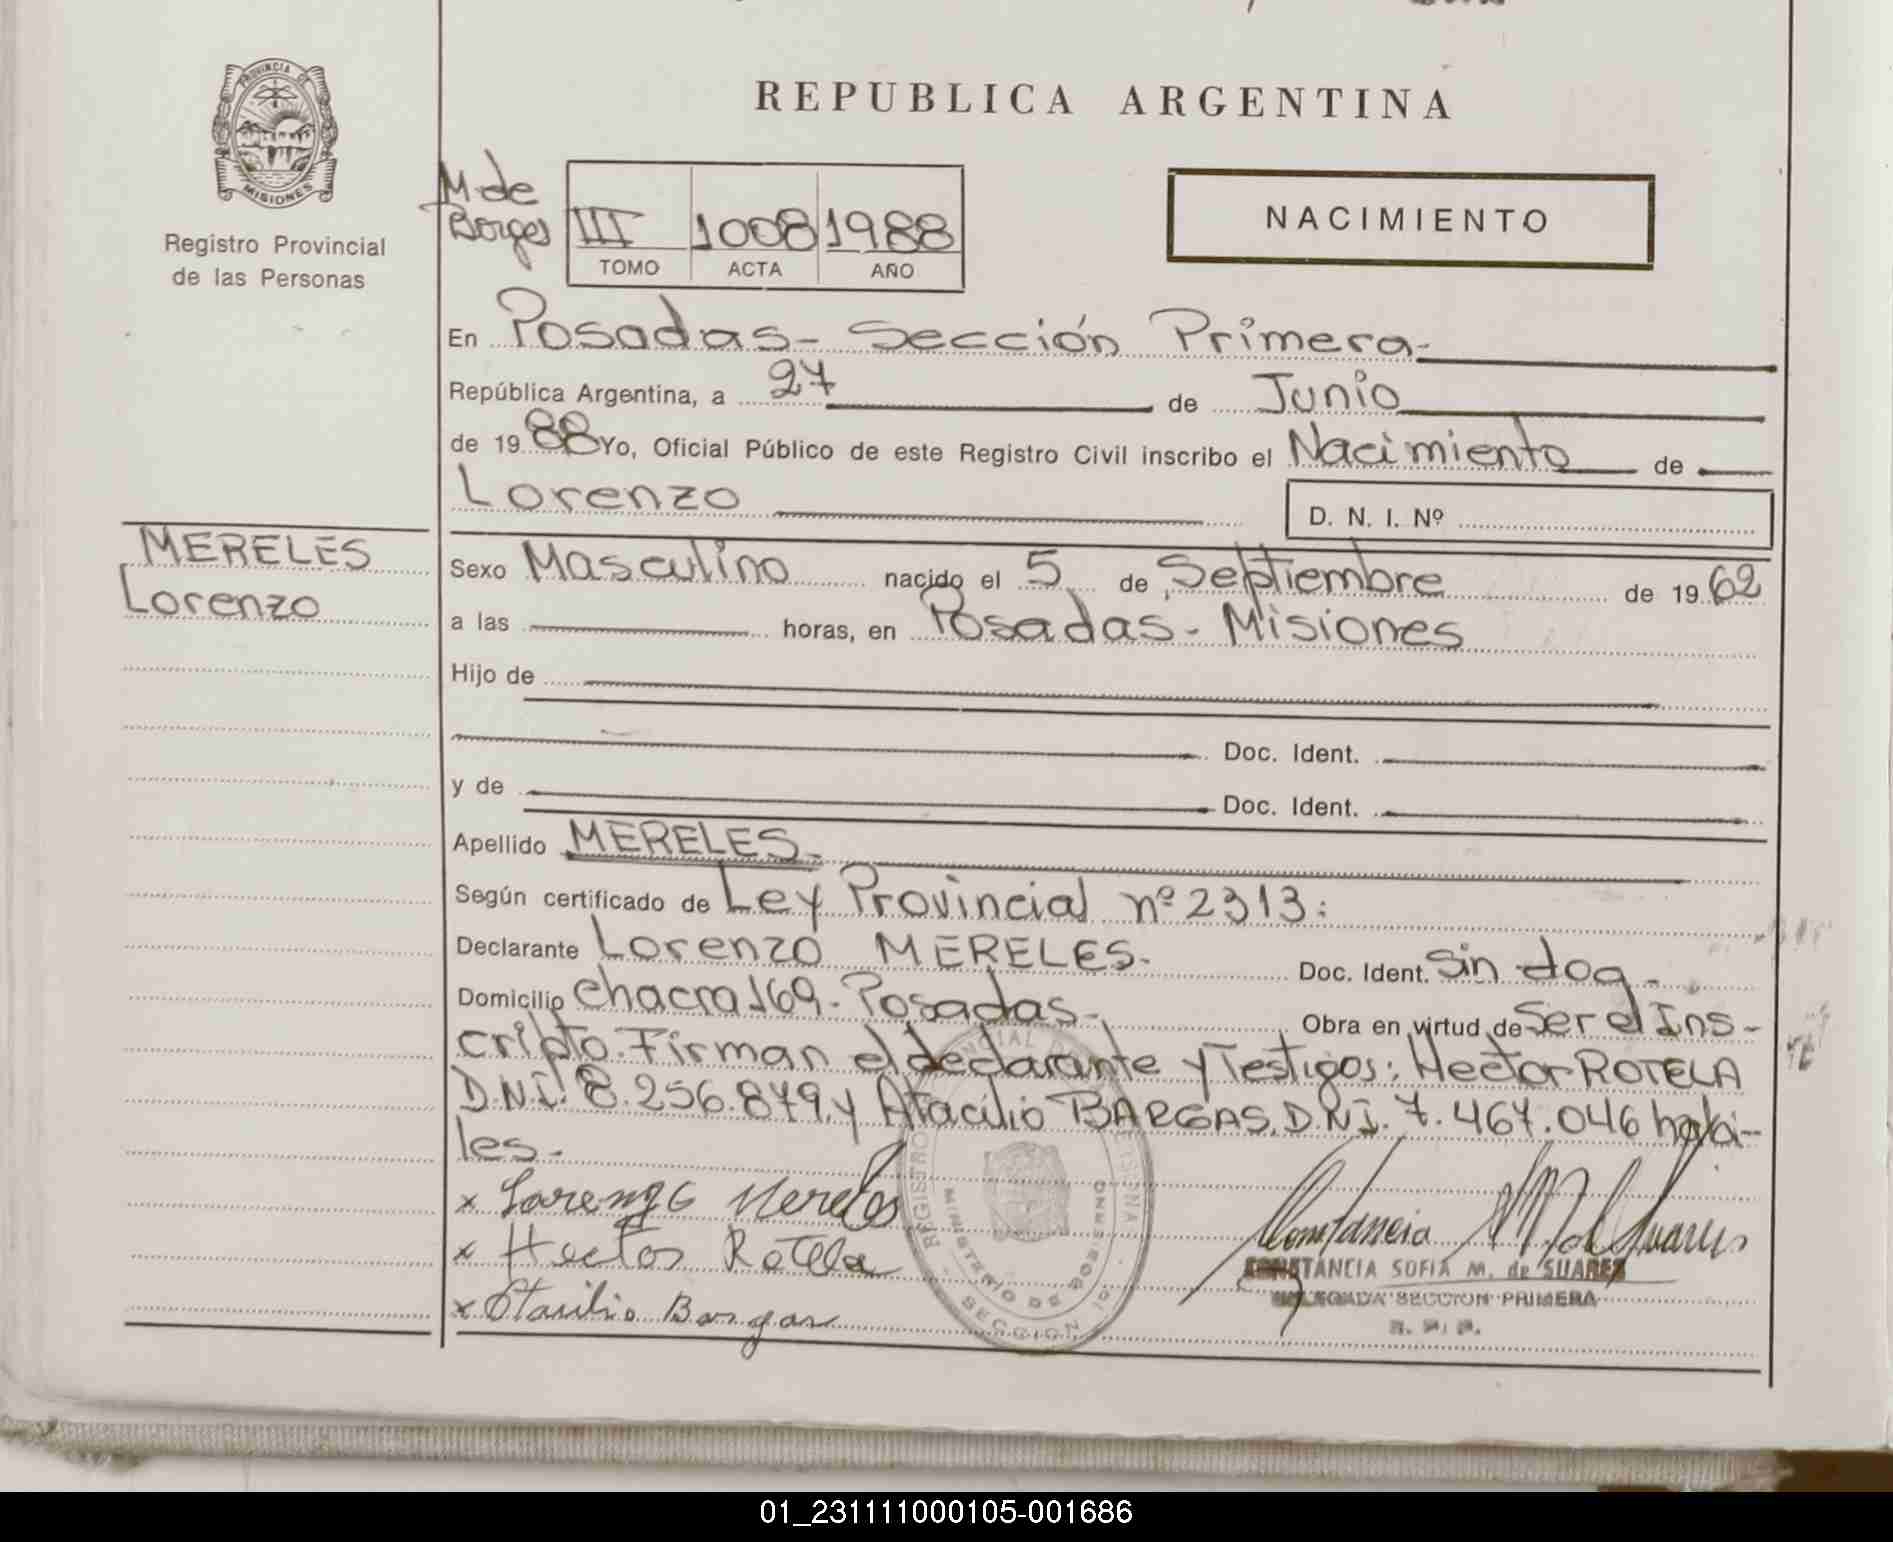 PROVINCIA DE
MISIONES
Registro Provincial
de las Personas
REPUBLICA ARGENTINA
M. de
Borges
III 1008 1988
TOMO ACTA AÑO
NACIMIENTO
En Posadas - Sección Primera -
República Argentina, a 27 de Junio
de 1988 Yo, Oficial Público de este Registro Civil inscribo el Nacimiento de
Lorenzo D. N. I. Nº
MERELES
Lorenzo
Sexo Masculino nacido el 5 de Septiembre de 1962
a las horas, en Posadas - Misiones
Hijo de
Doc. Ident.
y de Doc. Ident.
Apellido MERELES -
Según certificado de Ley Provincial nº 2313:
Declarante Lorenzo MERELES. Doc. Ident. Sin dog -
Domicilio chacra 169 - Posadas - Obra en virtud de Ser el Ins-
cripto. Firman el declarante y Testigos: Hector ROTELA
D.N.I. 8.256.879. y Atacilio BARGAS, D.N.I. 7.467.046 hábi-
les -
x Lorenzo Mereles
x Hector Rotela
x Atasilio Bargas
Constancia M de Suares
CONSTANCIA SOFIA M. de SUARES
DELEGADA SECCION PRIMERA
R. P. P.
MINISTERIO DE GOBIERNO
SECCION 1º
01_231111000105-001686